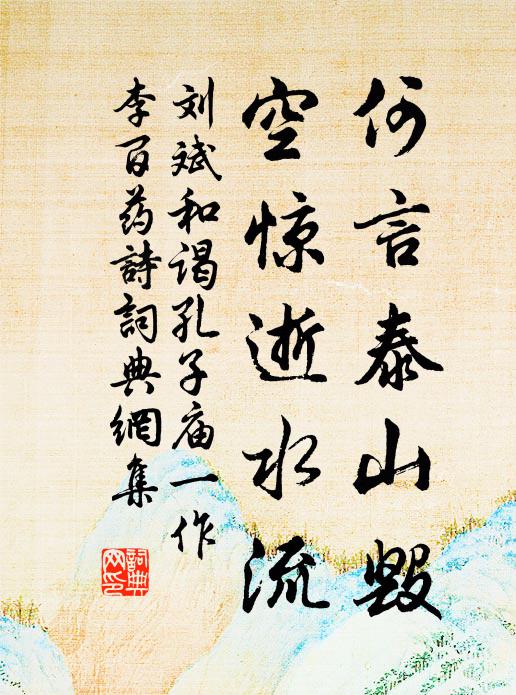 何言泰山毁
空惊逝水流
刘斌和谒孔子庙一作
李百药詩詞典網集
詞典
网印